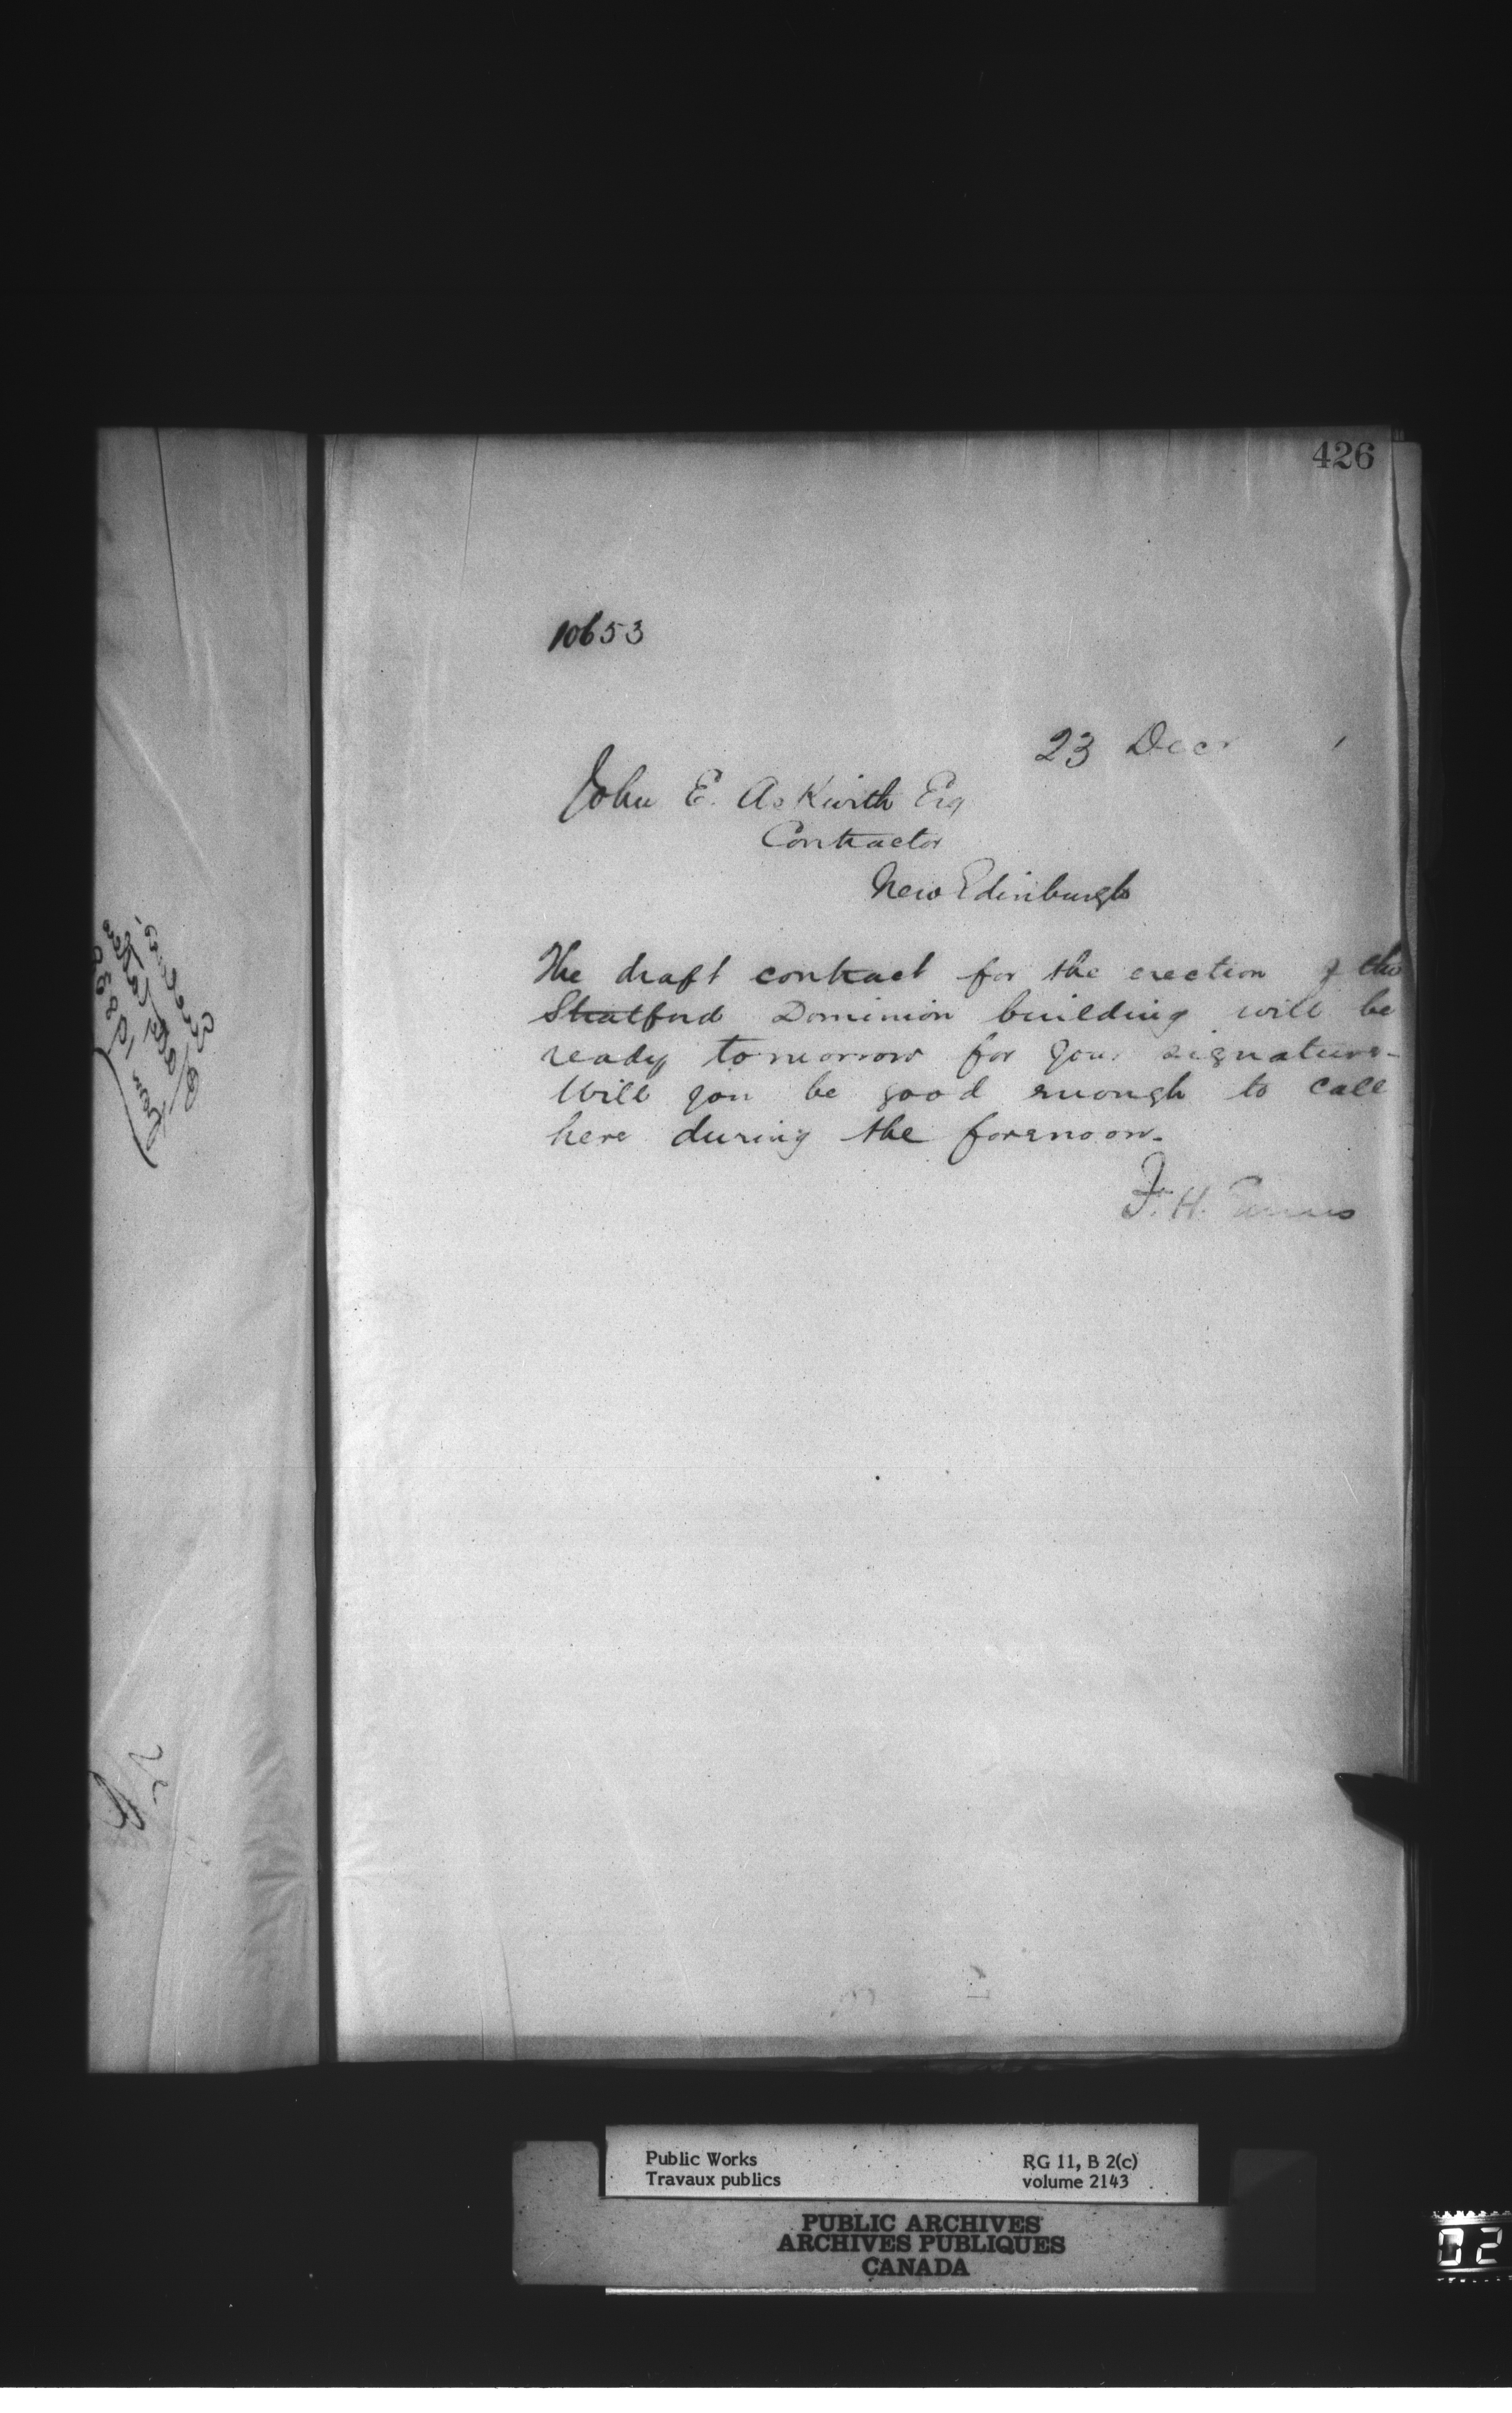 426
10653
23 Decr
John E. Askwith Esq
Contractor
New Edinburgh
The draft contract for the erection of the
Stratford Dominion building will be
ready tomorrow for your signature-
Will you be good enough to call
here during the forenoon-
F. H. Ennis
Public Works
Travaux publics
RG 11, B 2(c)
volume 2143
PUBLIC ARCHIVES
ARCHIVES PUBLIQUES
CANADA
02